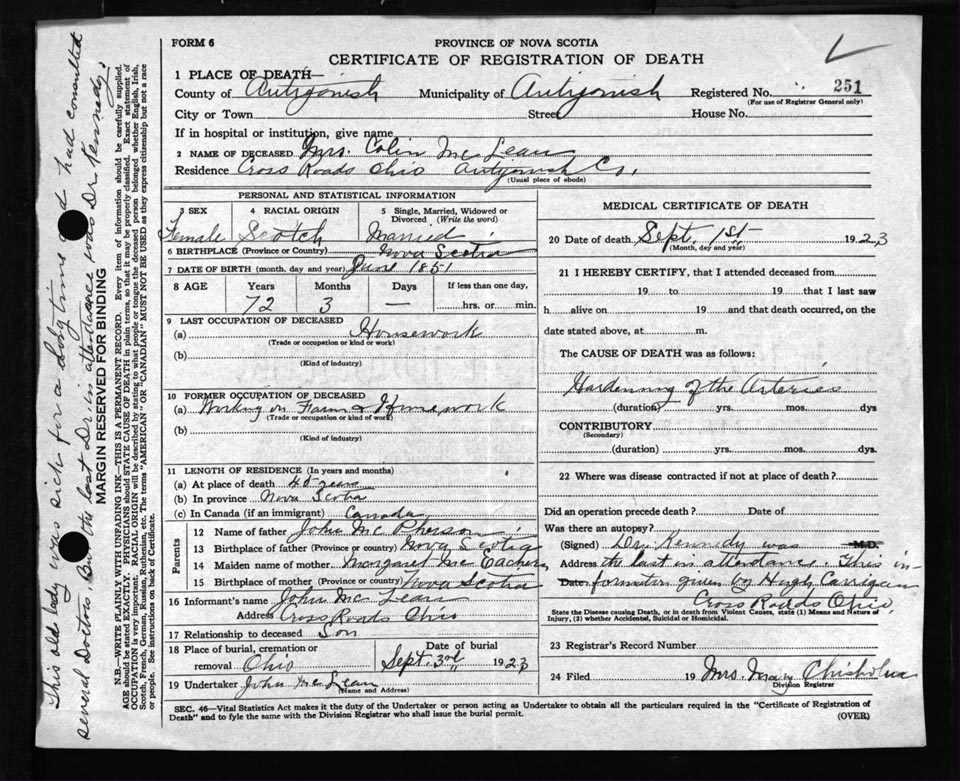 FORM 6
PROVINCE OF NOVA SCOTIA
CERTIFICATE OF REGISTRATION OF DEATH
1 PLACE OF DEATH—
County of Antigonish Municipality of Antigonish Registered No. 251
(For use of Registrar General only)
City or Town Street House No.
If in hospital or institution, give name
2 NAME OF DECEASED Mrs. Colin Mc Lean
Residence Cross Roads Ohio Antigonish Co.
(Usual place of abode)
PERSONAL AND STATISTICAL INFORMATION
3 SEX 4 RACIAL ORIGIN 5 Single, Married, Widowed or
Divorced (Write the word)
Female Scotch Married
6 BIRTHPLACE (Province or Country) Nova Scotia
7 DATE OF BIRTH (month, day and year) June 1851
8 AGE Years Months Days If less than one day,
72 3 — hrs. or min.
9 LAST OCCUPATION OF DECEASED
(a) Housework
(Trade or occupation or kind or work)
(b)
(Kind of industry)
10 FORMER OCCUPATION OF DECEASED
(a) Working on Farm & Homework
(Trade or occupation or kind of work)
(b)
(Kind of industry)
11 LENGTH OF RESIDENCE (In years and months)
(a) At place of death 45 years
(b) In province Nova Scotia
(c) In Canada (if an immigrant) Canada
Parents
12 Name of father John Mc Pherson
13 Birthplace of father (Province or country) Nova Scotia
14 Maiden name of mother Margaret Mc Eachern
15 Birthplace of mother (Province or country) Nova Scotia
16 Informant's name John Mc Lean
Address Cross Roads Ohio
17 Relationship to deceased Son
18 Place of burial, cremation or Date of burial
removal Ohio Sept. 3rd 1923
19 Undertaker John Mc Lean
(Name and Address)
MEDICAL CERTIFICATE OF DEATH
20 Date of death Sept. 1st 1923
(Month, day and year)
21 I HEREBY CERTIFY, that I attended deceased from
19 to 19 that I last saw
h alive on 19 and that death occurred, on the
date stated above, at m.
The CAUSE OF DEATH was as follows:
Hardenning of the Arteries
(duration) yrs. mos. dys
CONTRIBUTORY
(Secondary)
(duration) yrs. mos. dys.
22 Where was disease contracted if not at place of death?
Did an operation precede death? Date of
Was there an autopsy?
(Signed) Dr. Kennedy was M.D.
Address the last in attendance. This in-
Date formation given by Hugh Carrigan
Cross Roads Ohio,
State the Disease causing Death, or in death from Violent Causes, state (1) Means and Nature of
Injury, (2) whether Accidental, Suicidal or Homicidal.
23 Registrar's Record Number
24 Filed 19 Mrs. Mary Chisholm
Division Registrar
SEC. 46—Vital Statistics Act makes it the duty of the Undertaker or person acting as Undertaker to obtain all the particulars required in the "Certificate of Registration of
Death" and to fyle the same with the Division Registrar who shall issue the burial permit.
(OVER)
This old lady was sick for a long time and had consulted
several Doctors. But the last Dr. in attendance was Dr. Kennedy.
MARGIN RESERVED FOR BINDING
N.B.—WRITE PLAINLY WITH UNFADING INK—THIS IS A PERMANENT RECORD. Every item of information should be carefully supplied.
AGE should be stated EXACTLY. PHYSICIANS should STATE CAUSE OF DEATH in plain terms, so that it may be properly classified. Exact statement of
OCCUPATION is very important. RACIAL ORIGIN will be described by stating to what people or tongue the deceased person belonged whether English, Irish,
Scotch, French, German, Russian, Ruthenian, etc. The terms "AMERICAN" OR "CANADIAN" MUST NOT BE USED as they express citizenship but not a race
or people. See instructions on back of Certificate.